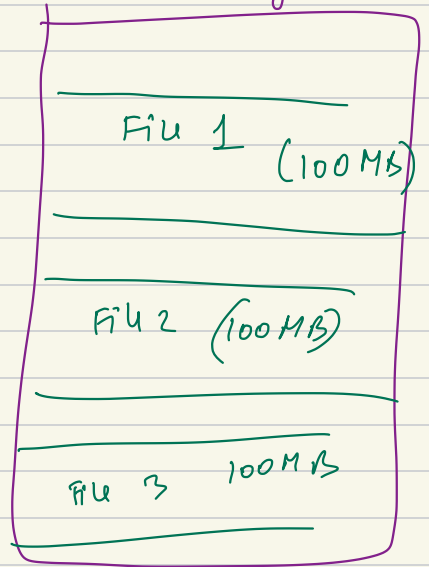 File 1
(100 MB)
File 2 (100 MB)
File 3 100 MB